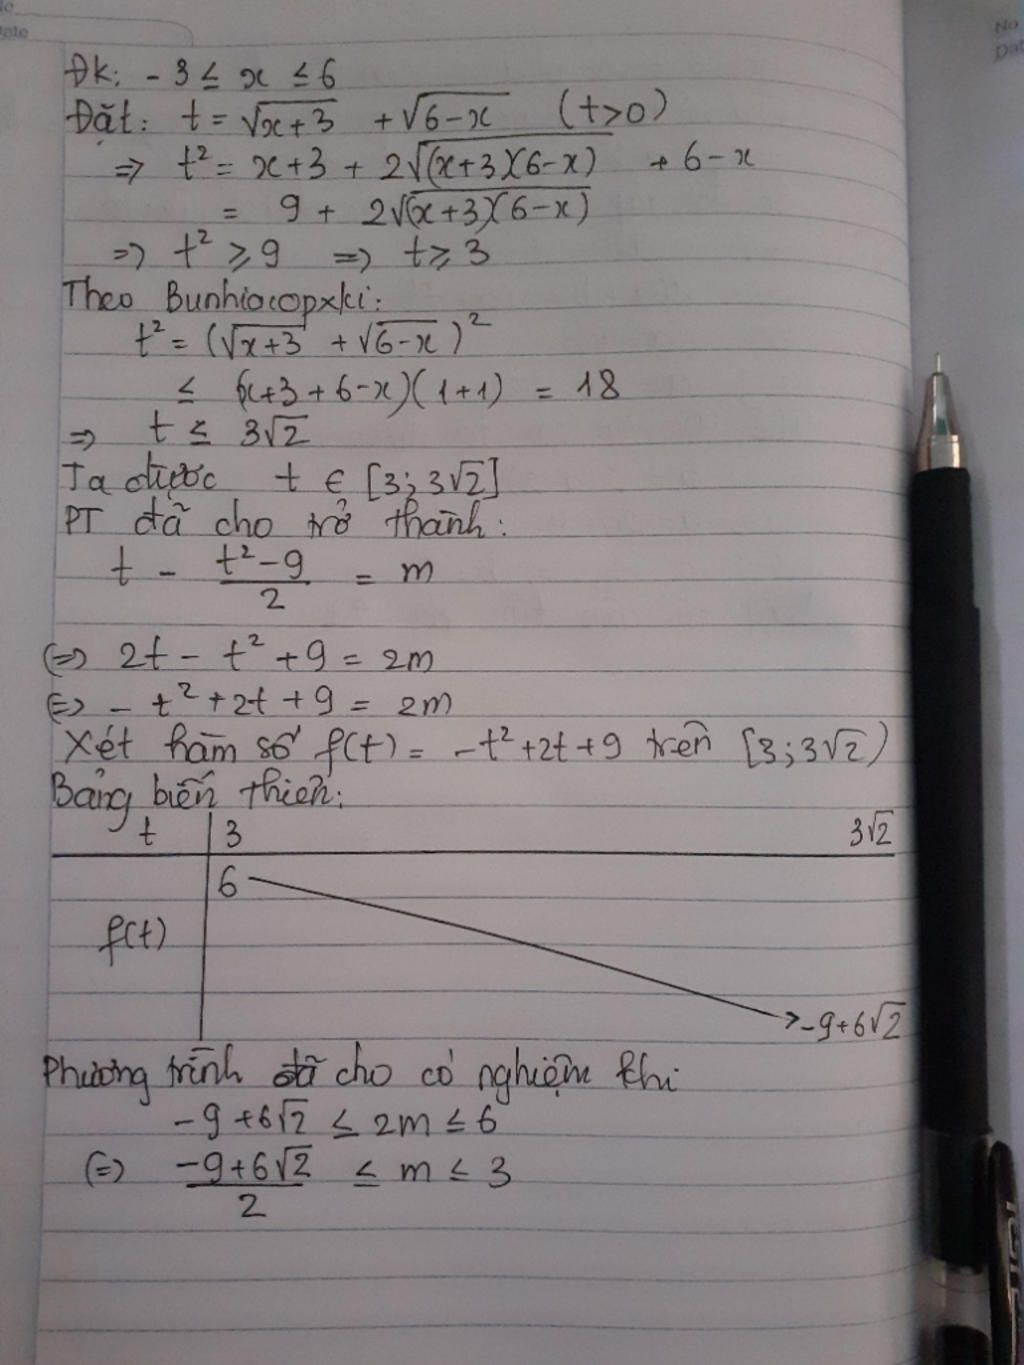 No
Date
No
Dat
Đk: - 3 ≤ x ≤ 6
Đặt: t = √(x+3) + √(6-x) (t>0)
=> t² = x+3 + 2√((x+3)(6-x)) + 6-x
= 9 + 2√((x+3)(6-x))
=> t² ≥ 9 => t ≥ 3
Theo Bunhiacopxki:
t² = (√(x+3) + √(6-x))²
≤ (x+3+6-x)(1+1) = 18
=> t ≤ 3√2
Ta được t ∈ [3; 3√2]
PT đã cho trở thành:
t - (t²-9)/2 = m
(=) 2t - t² + 9 = 2m
(=) - t² + 2t + 9 = 2m
Xét hàm số f(t) = -t²+2t+9 trên [3;3√2)
Bảng biến thiên:
t 3 3√2
f(t) 6 -9+6√2
Phương trình đã cho có nghiệm khi
-9+6√2 ≤ 2m ≤ 6
(=) (-9+6√2)/2 ≤ m ≤ 3